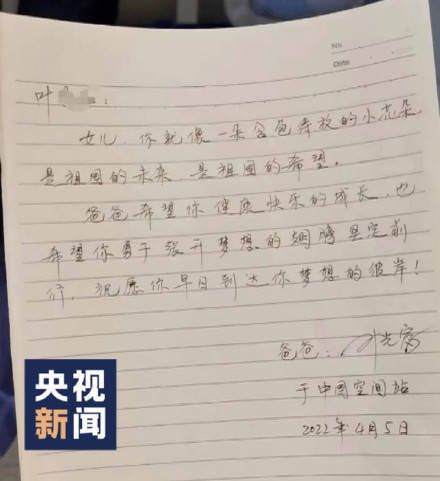 No.
Date
叶 :
女儿，你就像一朵含苞待放的小花朵，
是祖国的未来，是祖国的希望。
爸爸希望你健康快乐的成长，也
希望你勇于张开梦想的翅膀坚定前
行，祝愿你早日到达你梦想的彼岸！
爸爸：叶光富
于中国空间站
2022年4月5日
央视
新闻